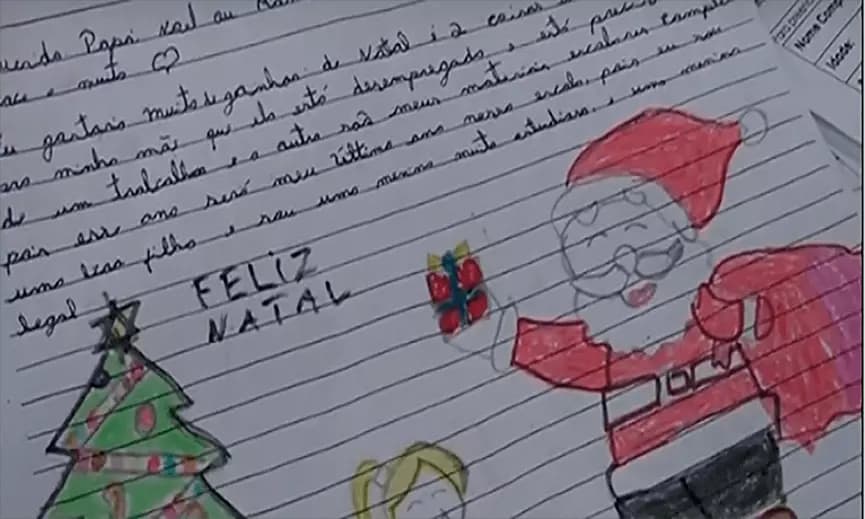 uerido Papai noel ou Ma
ace e muito
Eu gostaria muito de ganhar de Natal é 2 coisas
ara minha mãe que ela está desempregada e está preci
de um trabalho e a outra são meus materiais escolares comple
pois esse ano será meu último ano nessa escola, pois eu sou
uma boa filha e sou uma menina muito estudiosa, e uma menina
legal
FELIZ
NATAL
Nome Comp
Idade: